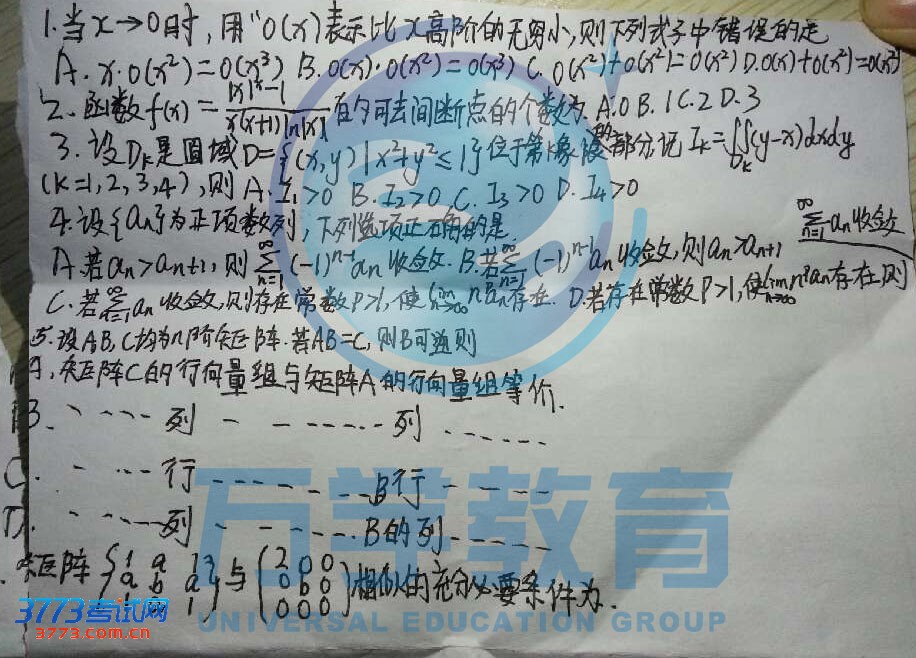 1.当x→0时,用"o(x)表示比x高阶的无穷小,则下列式子中错误的是
A. x·o(x²)=o(x³) B. o(x)·o(x²)=o(x³) C. o(x²)+o(x²)=o(x²) D. o(x)+o(x²)=o(x²)
2. 函数f(x)=(|x|^x-1)/(x(x+1)ln|x|)有的可去间断点的个数为. A.0 B.1 C.2 D.3
3. 设Dk是圆域D={(x,y)|x²+y²≤1}位于第k象限的部分,记 Ik=∬Dk(y-x)dxdy
(k=1,2,3,4),则 A. I₁>0 B. I₂>0 C. I₃>0 D. I₄>0
4. 设{an}为正项数列,下列选项正确的是.
A.若an>an+1,则∑(n=1,∞)(-1)^(n-1)an收敛. B.若∑(n=1,∞)(-1)^(n-1)an收敛,则an>an+1
C.若∑(n=1,∞)an收敛,则存在常数P>1,使lim(n→∞)n^P an存在. D.若存在常数P>1,使lim(n→∞)n^P an存在,则
∑(n=1,∞)an收敛
5.设A,B,C均为n阶矩阵.若AB=C,则B可逆则
A.矩阵C的行向量组与矩阵A的行向量组等价.
B. 列 列
C. 行 B行
D. 列 B的列
矩阵(1 a 1; a b a; 1 a 1)与(2 0 0; 0 b 0; 0 0 0)相似的充分必要条件为.
万学教育
UNIVERSAL EDUCATION GROUP
3773考试网
3773.com.cn